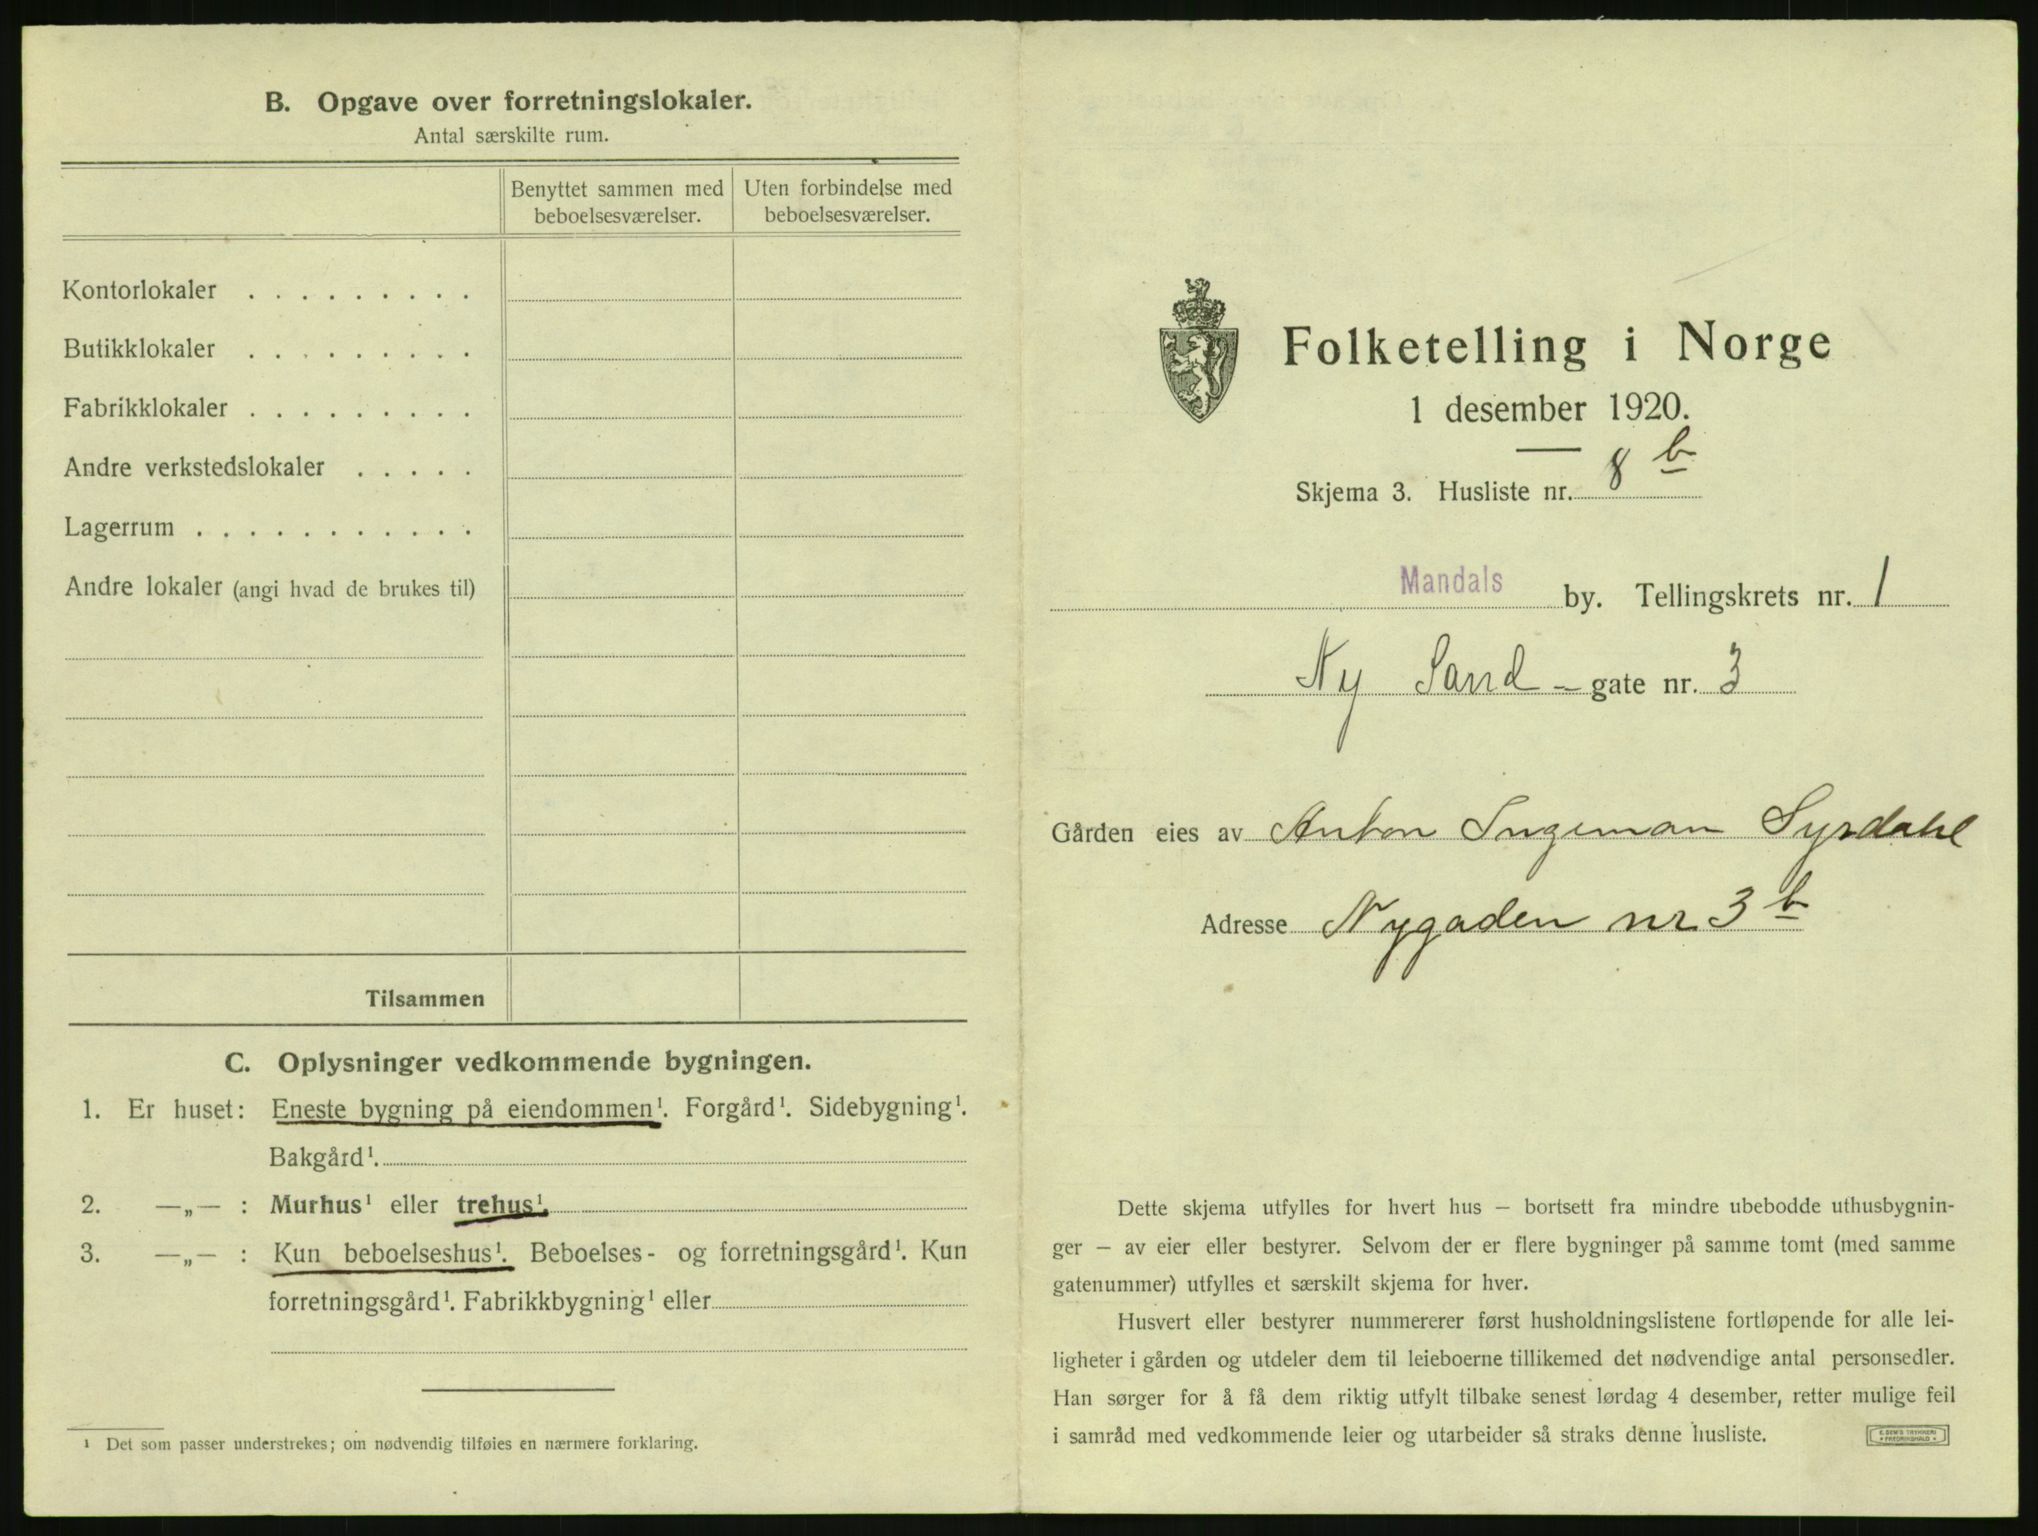 B. Opgave over forretningslokaler.
Antal særskilte rum.
Benyttet sammen med beboelsesværelser.
Uten forbindelse med beboelsesværelser.
Kontorlokaler . . . . . . . . .
Butikklokaler . . . . . . . . .
Fabrikklokaler . . . . . . . . .
Andre verkstedslokaler . . . . .
Lagerrum . . . . . . . . . . .
Andre lokaler (angi hvad de brukes til)
Tilsammen
C. Oplysninger vedkommende bygningen.
1. Er huset: Eneste bygning på eiendommen¹. Forgård¹. Sidebygning¹.
Bakgård¹.
2. —„— : Murhus¹ eller trehus¹.
3. —„— : Kun beboelseshus¹. Beboelses- og forretningsgård¹. Kun
forretningsgård¹. Fabrikkbygning¹ eller
¹ Det som passer understrekes; om nødvendig tilføies en nærmere forklaring.
Folketelling i Norge
1 desember 1920.
Skjema 3. Husliste nr. 8 b
Mandals by. Tellingskrets nr. 1
Ny Sand - gate nr. 3
Gården eies av Anton Ingeman Syrdahl
Adresse Nygaden nr 3 b
Dette skjema utfylles for hvert hus — bortsett fra mindre ubebodde uthusbygnin-
ger — av eier eller bestyrer. Selvom der er flere bygninger på samme tomt (med samme
gatenummer) utfylles et særskilt skjema for hver.
Husvert eller bestyrer nummererer først husholdningslistene fortløpende for alle lei-
ligheter i gården og utdeler dem til leieboerne tillikemed det nødvendige antal personsedler.
Han sørger for å få dem riktig utfylt tilbake senest lørdag 4 desember, retter mulige feil
i samråd med vedkommende leier og utarbeider så straks denne husliste.
E. SEM'S TRYKKERI
• FREDRIKSHALD •